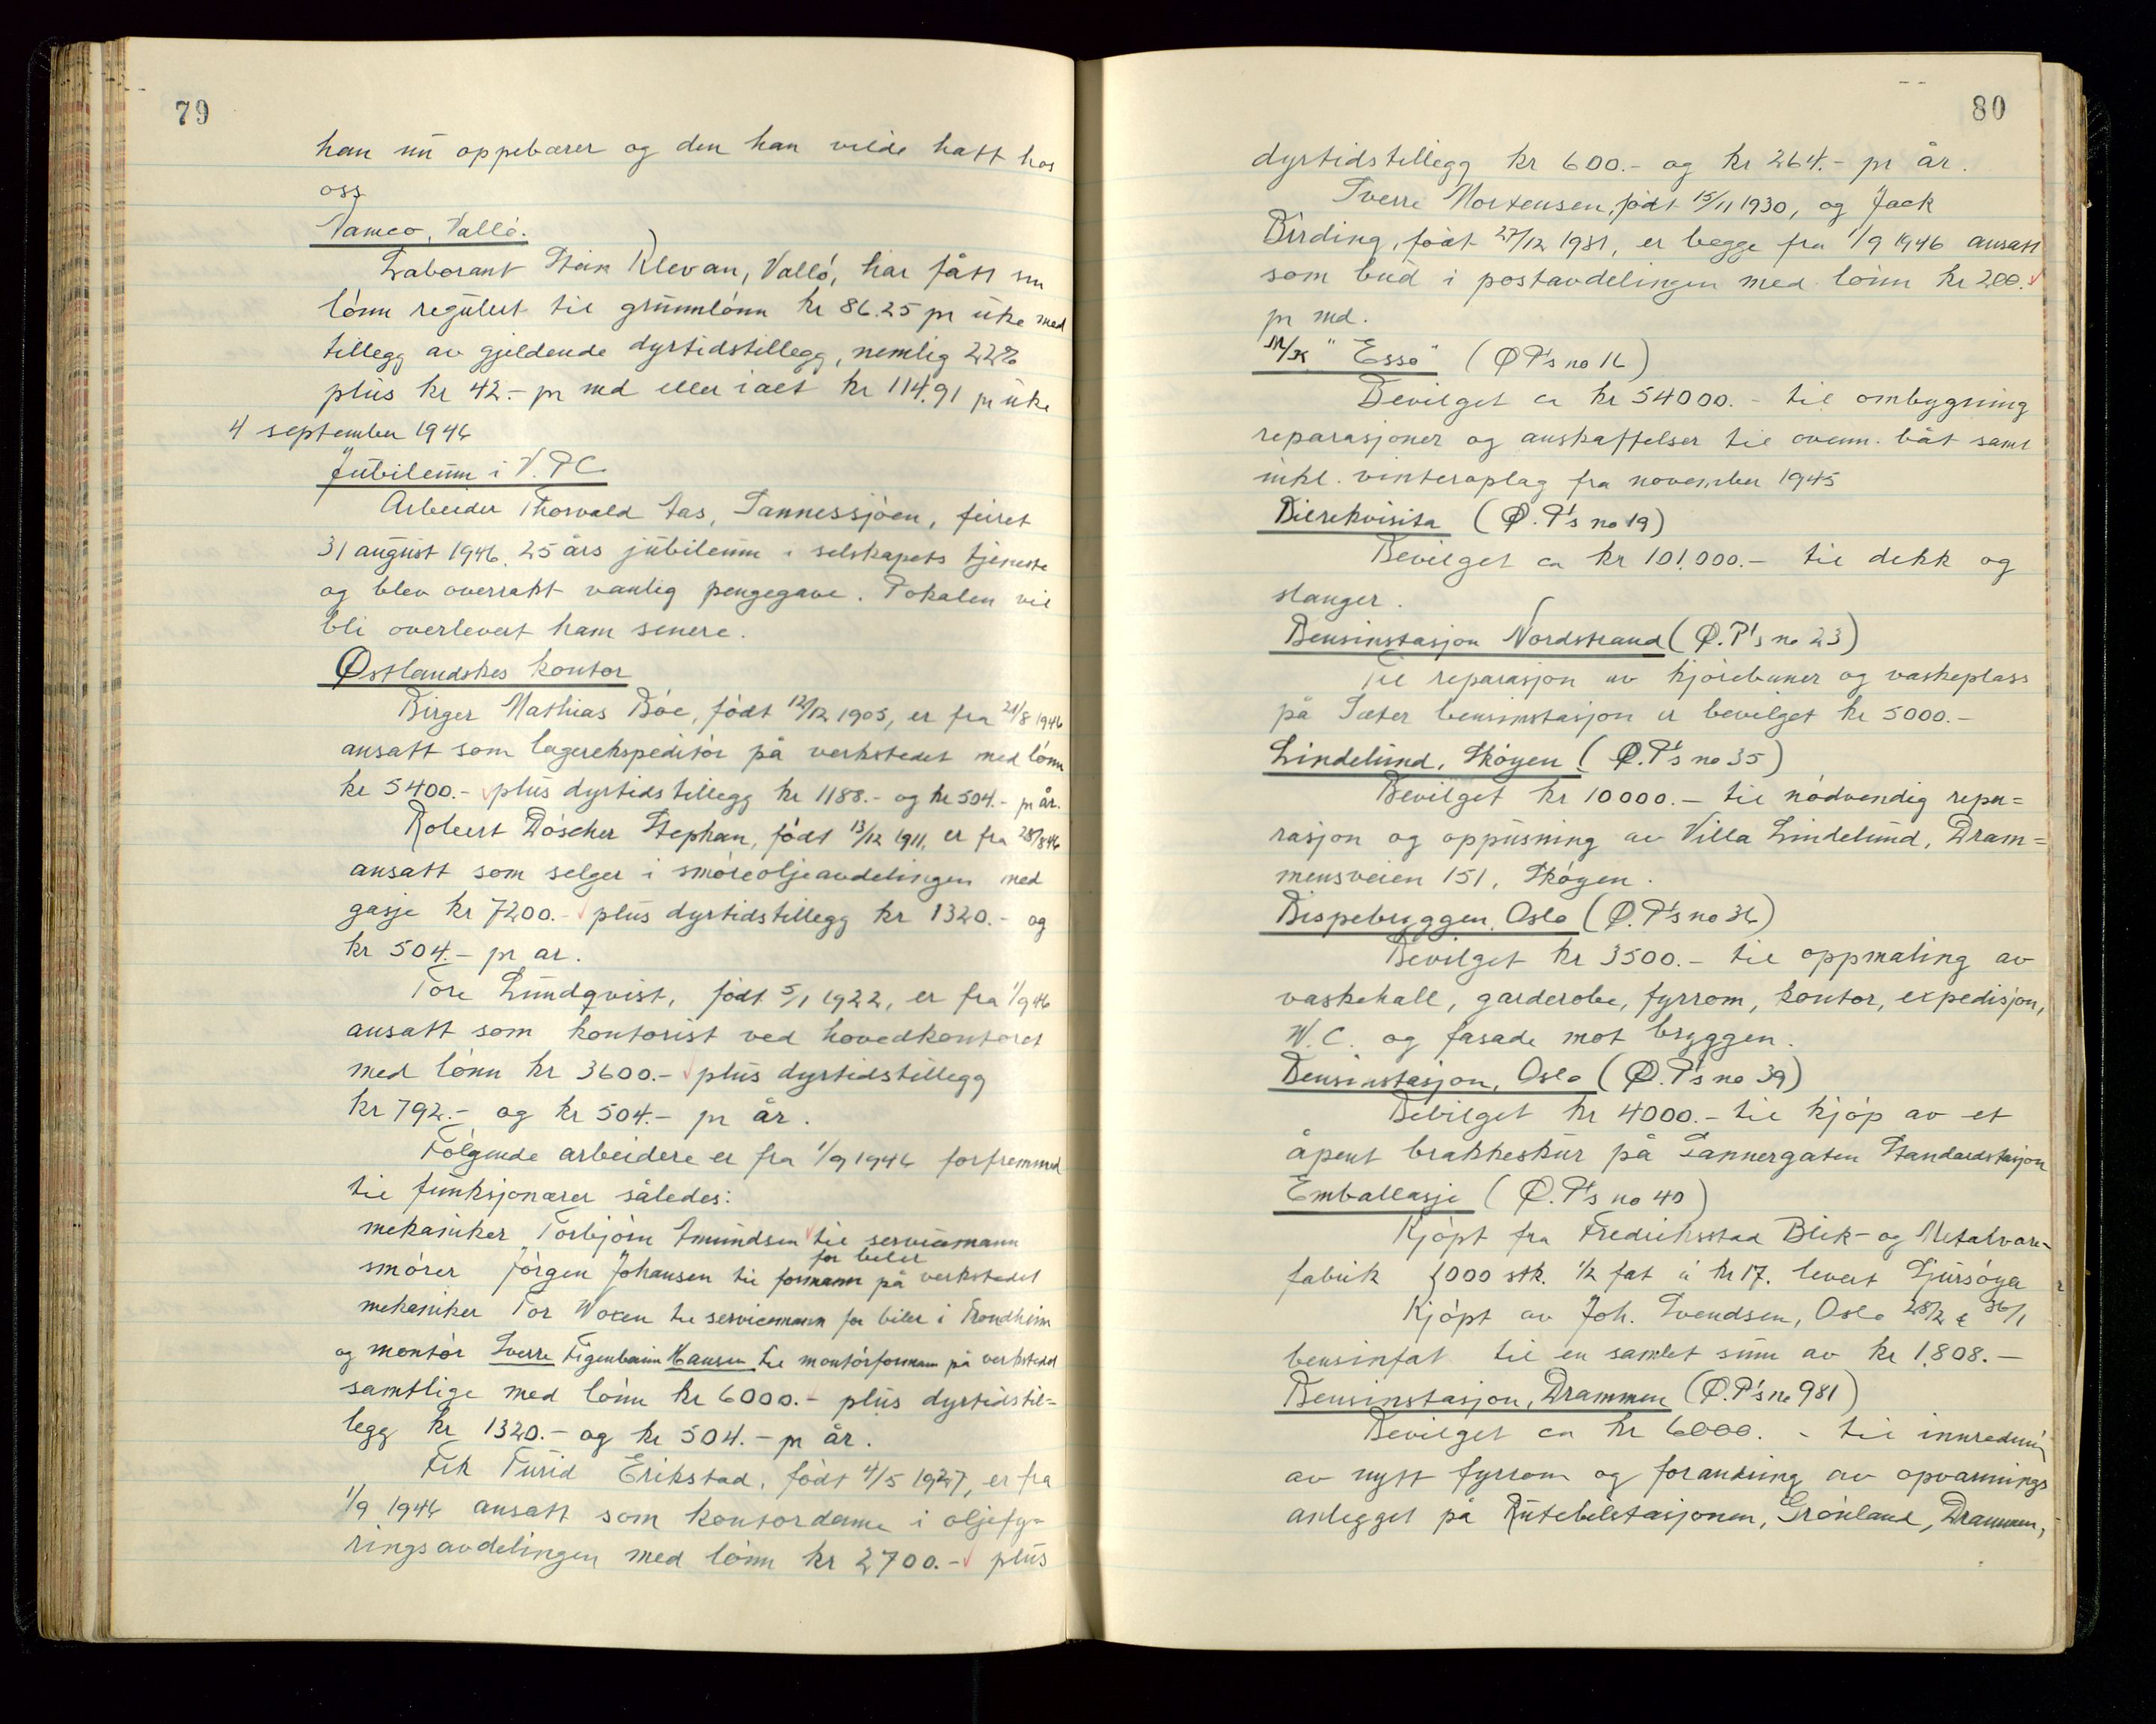 79
han nu oppebærer og den han vilde hatt hos
oss
Vameo, Vallö.
Laborant Stein Klevan, Vallö, har fått sin
lönn regulert til grunnlönn kr 86.25 pr uke med
tillegg av gjeldende dyrtidstillegg, nemlig 22%
plus kr 42.- pr md eller ialt kr 114.91 pr uke
4 september 1946
Jubileum i V.P.C.
Arbeider Thorvald Aas, Tannessjöen, feiret
31 august 1946 25 års jubileum i selskapets tjeneste
og blev overrakt vanlig pengegave. Pokalen vil
bli overlevert ham senere.
Østlandskes kontor
Birger Mathias Böe, födt 12/12 1905, er fra 21/8 1946
ansatt som lagerekspeditör på verkstedet med lönn
kr 5400.- plus dyrtidstillegg kr 1188.- og kr 504.- pr år.
Robert Döscher Stephan, födt 13/12 1911, er fra 28/8 46
ansatt som selger i smöreoljeavdelingen med
gasje kr 7200.- plus dyrtidstillegg kr 1320.- og
kr 504.- pr ar.
Tore Lundqvist, födt 5/1 1922, er fra 1/9 46
ansatt som kontorist ved hovedkontoret
med lönn kr 3600.- plus dyrtidstillegg
kr 792.- og kr 504.- pr år.
Fölgende arbeidere er fra 1/9 1946 forfremmed
til funksjonærer således:
mekaniker Torbjörn Amundsen til servicemann
for biler
smörer Jörgen Johansen til formann på verkstedet
mekaniker Tor Woxen til servicemann for biler i Trondheim
og montör Sverre Figenbaum Hansen til montörformann på verkstedet
samtlige med lönn kr 6000.- plus dyrtidstil=
legg kr 1320.- og kr 504.- pr år.
Frk Turid Erikstad, födt 4/5 1927, er fra
1/9 1946 ansatt som kontordame i oljefy=
ringsavdelingen med lönn kr 2700.- plus
80
dyrtidstillegg kr 600.- og kr 264.- pr år.
Sverre Mortensen, födt 15/11 1930, og Jack
Birding, födt 27/12 1931, er begge fra 1/9 1946 ansatt
som bud i postavdelingen med lönn kr 200.
pr md.
M/K "Esso" (Ø P's no 16)
Bevilget ca kr 54000.- til ombygning
reparasjoner og anskaffelser til ovenn. båt samt
inkl. vinteroplag fra november 1945
Bilrekvisita (Ø.P's no 19)
Bevilget ca kr 101.000.- til dekk og
slanger.
Bensinstasjon Nordstrand (Ø.P's no 23)
Til reparasjon av kjörebaner og vaskeplass
på Sæter bensinstasjon er bevilget kr 5000.-
Lindelund, Sköyen (Ø.P's no 35)
Bevilget kr 10000.- til nödvendig repa=
rasjon og oppusning av Villa Lindelund, Dram=
mensveien 151, Sköyen.
Bispebryggen, Oslo (Ø.P's no 36)
Bevilget kr 3500.- til oppmaling av
vaskehall, garderobe, fyrrom, kontor, expedisjon,
W.C. og fasade mot bryggen.
Bensinstasjon, Oslo (Ø.P's no 39)
Bevilget kr 4000.- til kjöp av et
åpent brakkeskur på Sannergaten Standardstasjon
Emballasje (Ø.P's no 40)
Kjöpt fra Fredriksstad Blik- og Metalvare-
fabrik 1000 stk. 1/2 fat á kr 17. levert Sjursöya
Kjöpt av Joh. Svendsen, Oslo 28/2 & 36/1
bensinfat til en samlet sum av kr 1.808.-
Bensinstasjon, Drammen (Ø.P's no 981)
Bevilget ca kr 6000.- til innredning
av nytt fyrrom og forandring av opvarmings
anlegget på Rutebilstasjonen, Grönland, Drammen,